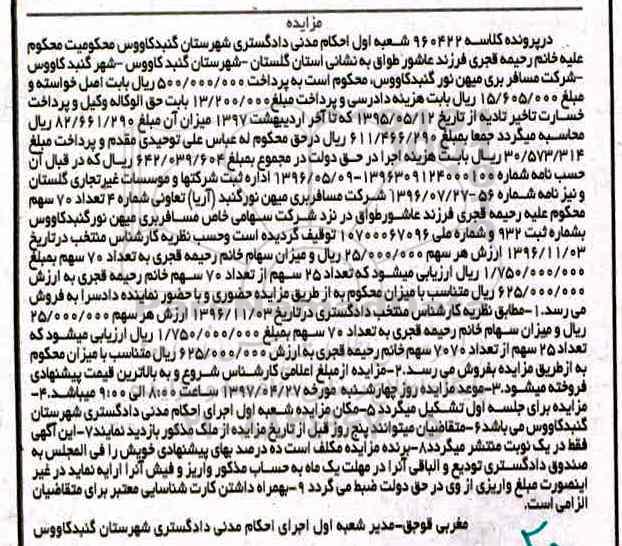 مزایده
درپرونده کلاسه ۹۶۰۴۲۲ شعبه اول احکام مدنی دادگستری شهرستان گنبدکاووس محکومیت محکوم
علیه خانم رحیمه قجری فرزند عاشور طواق به نشانی استان گلستان -شهرستان گنبد کاووس -شهر گنبد کاووس
-شرکت مسافربری میهن نور گنبدکاووس، محکوم است به پرداخت ۵۰۰/۰۰۰/۰۰۰ ریال بابت اصل خواسته و
مبلغ ۱۵/۶۰۵/۰۰۰ ریال بابت هزینه دادرسی و پرداخت مبلغ ۱۳/۲۰۰/۰۰۰ بابت حق الوکاله وکیل و پرداخت
خسارت تاخیر تادیه از تاریخ ۱۳۹۵/۰۵/۱۲ که تا آخر اردیبهشت ۱۳۹۷ میزان آن مبلغ ۸۲/۶۶۱/۲۹۰ ریال
محاسبه میگردد جمعا بمبلغ ۶۱۱/۴۶۶/۲۹۰ ریال درحق محکوم له عباس علی توحیدی مقدم و پرداخت مبلغ
۳۰/۵۷۳/۳۱۴ ریال بابت هزینه اجرا در حق دولت در مجموع بمبلغ ۶۴۲/۰۳۹/۶۰۴ ریال که در قبال آن
حسب نامه شماره ۱۳۹۶۳۰۹۱۲۴۰۰۰۱۰۰-۱۳۹۶/۰۵/۰۹ اداره ثبت شرکتها و موسسات غیرتجاری گلستان
و نیز نامه شماره ۵۶-۱۳۹۶/۰۷/۲۷ شرکت مسافربری میهن نورگنبد (آریا) تعاونی شماره ۴ تعداد ۷۰ سهم
محکوم علیه رحیمه قجری فرزند عاشورطواق در نزد شرکت سهامی خاص مسافربری میهن نورگنبدکاووس
بشماره ثبت ۹۳۲ و شماره ملی ۱۰۷۰۰۰۶۷۰۹۶ توقیف گردیده است وحسب نظریه کارشناس منتخب درتاریخ
۱۳۹۶/۱۱/۰۳ ارزش هر سهم ۲۵/۰۰۰/۰۰۰ ریال و میزان سهام خانم رحیمه قجری به تعداد ۷۰ سهم بمبلغ
۱/۷۵۰/۰۰۰/۰۰۰ ریال ارزیابی میشود که تعداد ۲۵ سهم از تعداد ۷۰ سهم خانم رحیمه قجری به ارزش
۶۲۵/۰۰۰/۰۰۰ ریال متناسب با میزان محکوم به از طریق مزایده حضوری و با حضور نماینده دادسرا به فروش
می رسد.۱-مطابق نظریه کارشناس منتخب دادگستری درتاریخ ۱۳۹۶/۱۱/۰۳ ارزش هر سهم ۲۵/۰۰۰/۰۰۰
ریال و میزان سهام خانم رحیمه قجری به تعداد ۷۰ سهم بمبلغ ۱/۷۵۰/۰۰۰/۰۰۰ ریال ارزیابی میشود که
تعداد ۲۵ سهم از تعداد ۷۰۷۰ سهم خانم رحیمه قجری به ارزش ۶۲۵/۰۰۰/۰۰۰ ریال متناسب با میزان محکوم
به ازطریق مزایده بفروش می رسد.۲-مزایده از مبلغ اعلامی کارشناس شروع و به بالاترین قیمت پیشنهادی
فروخته میشود.۳-موعد مزایده روز چهارشنبه مورخه ۱۳۹۷/۰۴/۲۷ ساعت ۸:۰۰ الی ۹:۰۰ میباشد.۴-
مزایده برای جلسه اول تشکیل میگردد ۵-مکان مزایده شعبه اول اجرای احکام مدنی دادگستری شهرستان
گنبدکاووس می باشد ۶-متقاضیان میتوانند پنج روز قبل از تاریخ مزایده از ملک مذکور بازدید نمایند۷-این آگهی
فقط در یک نوبت منتشر میگردد۸-برنده مزایده مکلف است ده درصد بهای پیشنهادی خویش را فی المجلس به
صندوق دادگستری تودیع و الباقی آنرا در مهلت یک ماه به حساب مذکور واریز و فیش آنرا ارایه نماید در غیر
اینصورت مبلغ واریزی از وی در حق دولت ضبط می گردد ۹-بهمراه داشتن کارت شناسایی معتبر برای متقاضیان
الزامی است.
مغربی قوجق-مدیر شعبه اول اجرای احکام مدنی دادگستری شهرستان گنبدکاووس